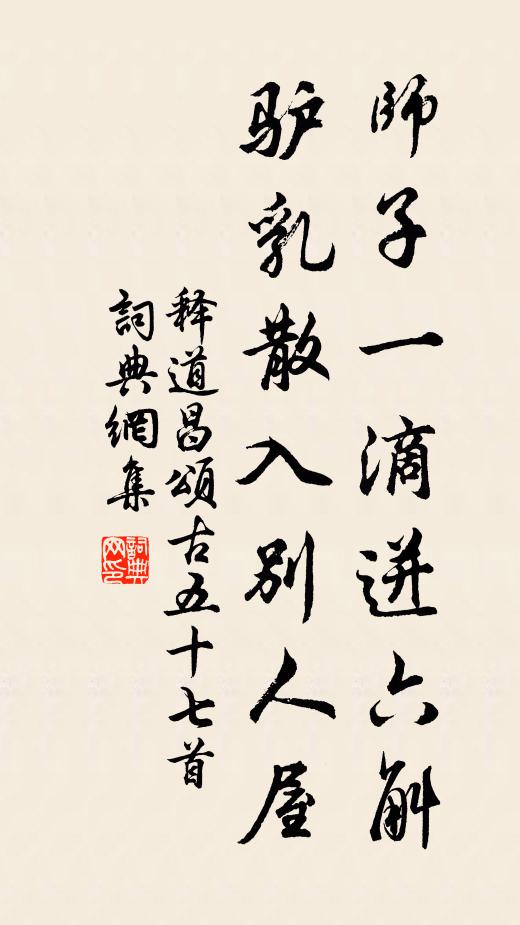 師子一滴迸六斛
驴乳散入别人屋
释道昌頌古五十七首
詞典網集
詞典网印